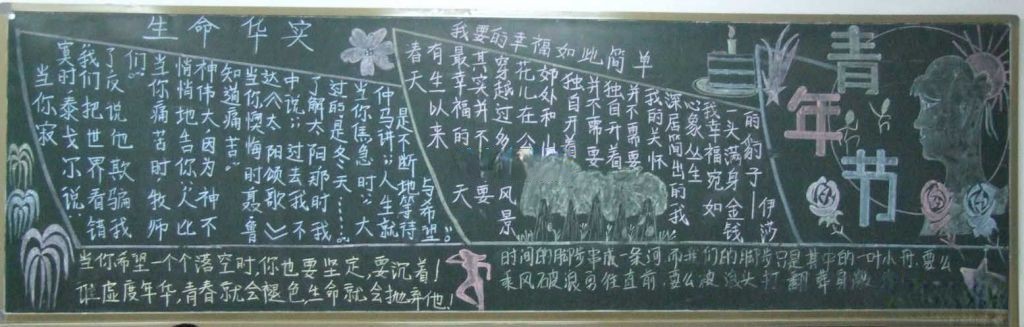 生命华实
当你寂
寞时:泰戈尔说:
我们把世界看错
了反说他欺骗我
们
当你痛苦时牧师
悄悄地告诉你:人比
神伟大,因为神不
知道痛苦。
当你懊悔时聂鲁
达《太阳颂歌》
中说:过去我不
了解太阳那时我
过的是冬天……。
当你焦急时:大
仲马讲:人生就
是不断地等待
与希望。
我要的幸福如此简单
春天
有生以来
我最幸福的 天
其实并不 要
穿越过多 风景
花儿在
郊处和
独自开着
并不需要
我的关怀
深居简出的我
心象丛生
我幸福宛如
一头满身金钱
的豹子—伊莎
青年节
当你希望一个个落空时,你也要坚定,要沉着!
谁虚度年华,青春就会褪色,生命就会抛弃他!
时间的脚步串成一条河,而我们的脚步只是其中的一叶小舟,要么
乘风破浪勇往直前,要么被浪头打翻葬身